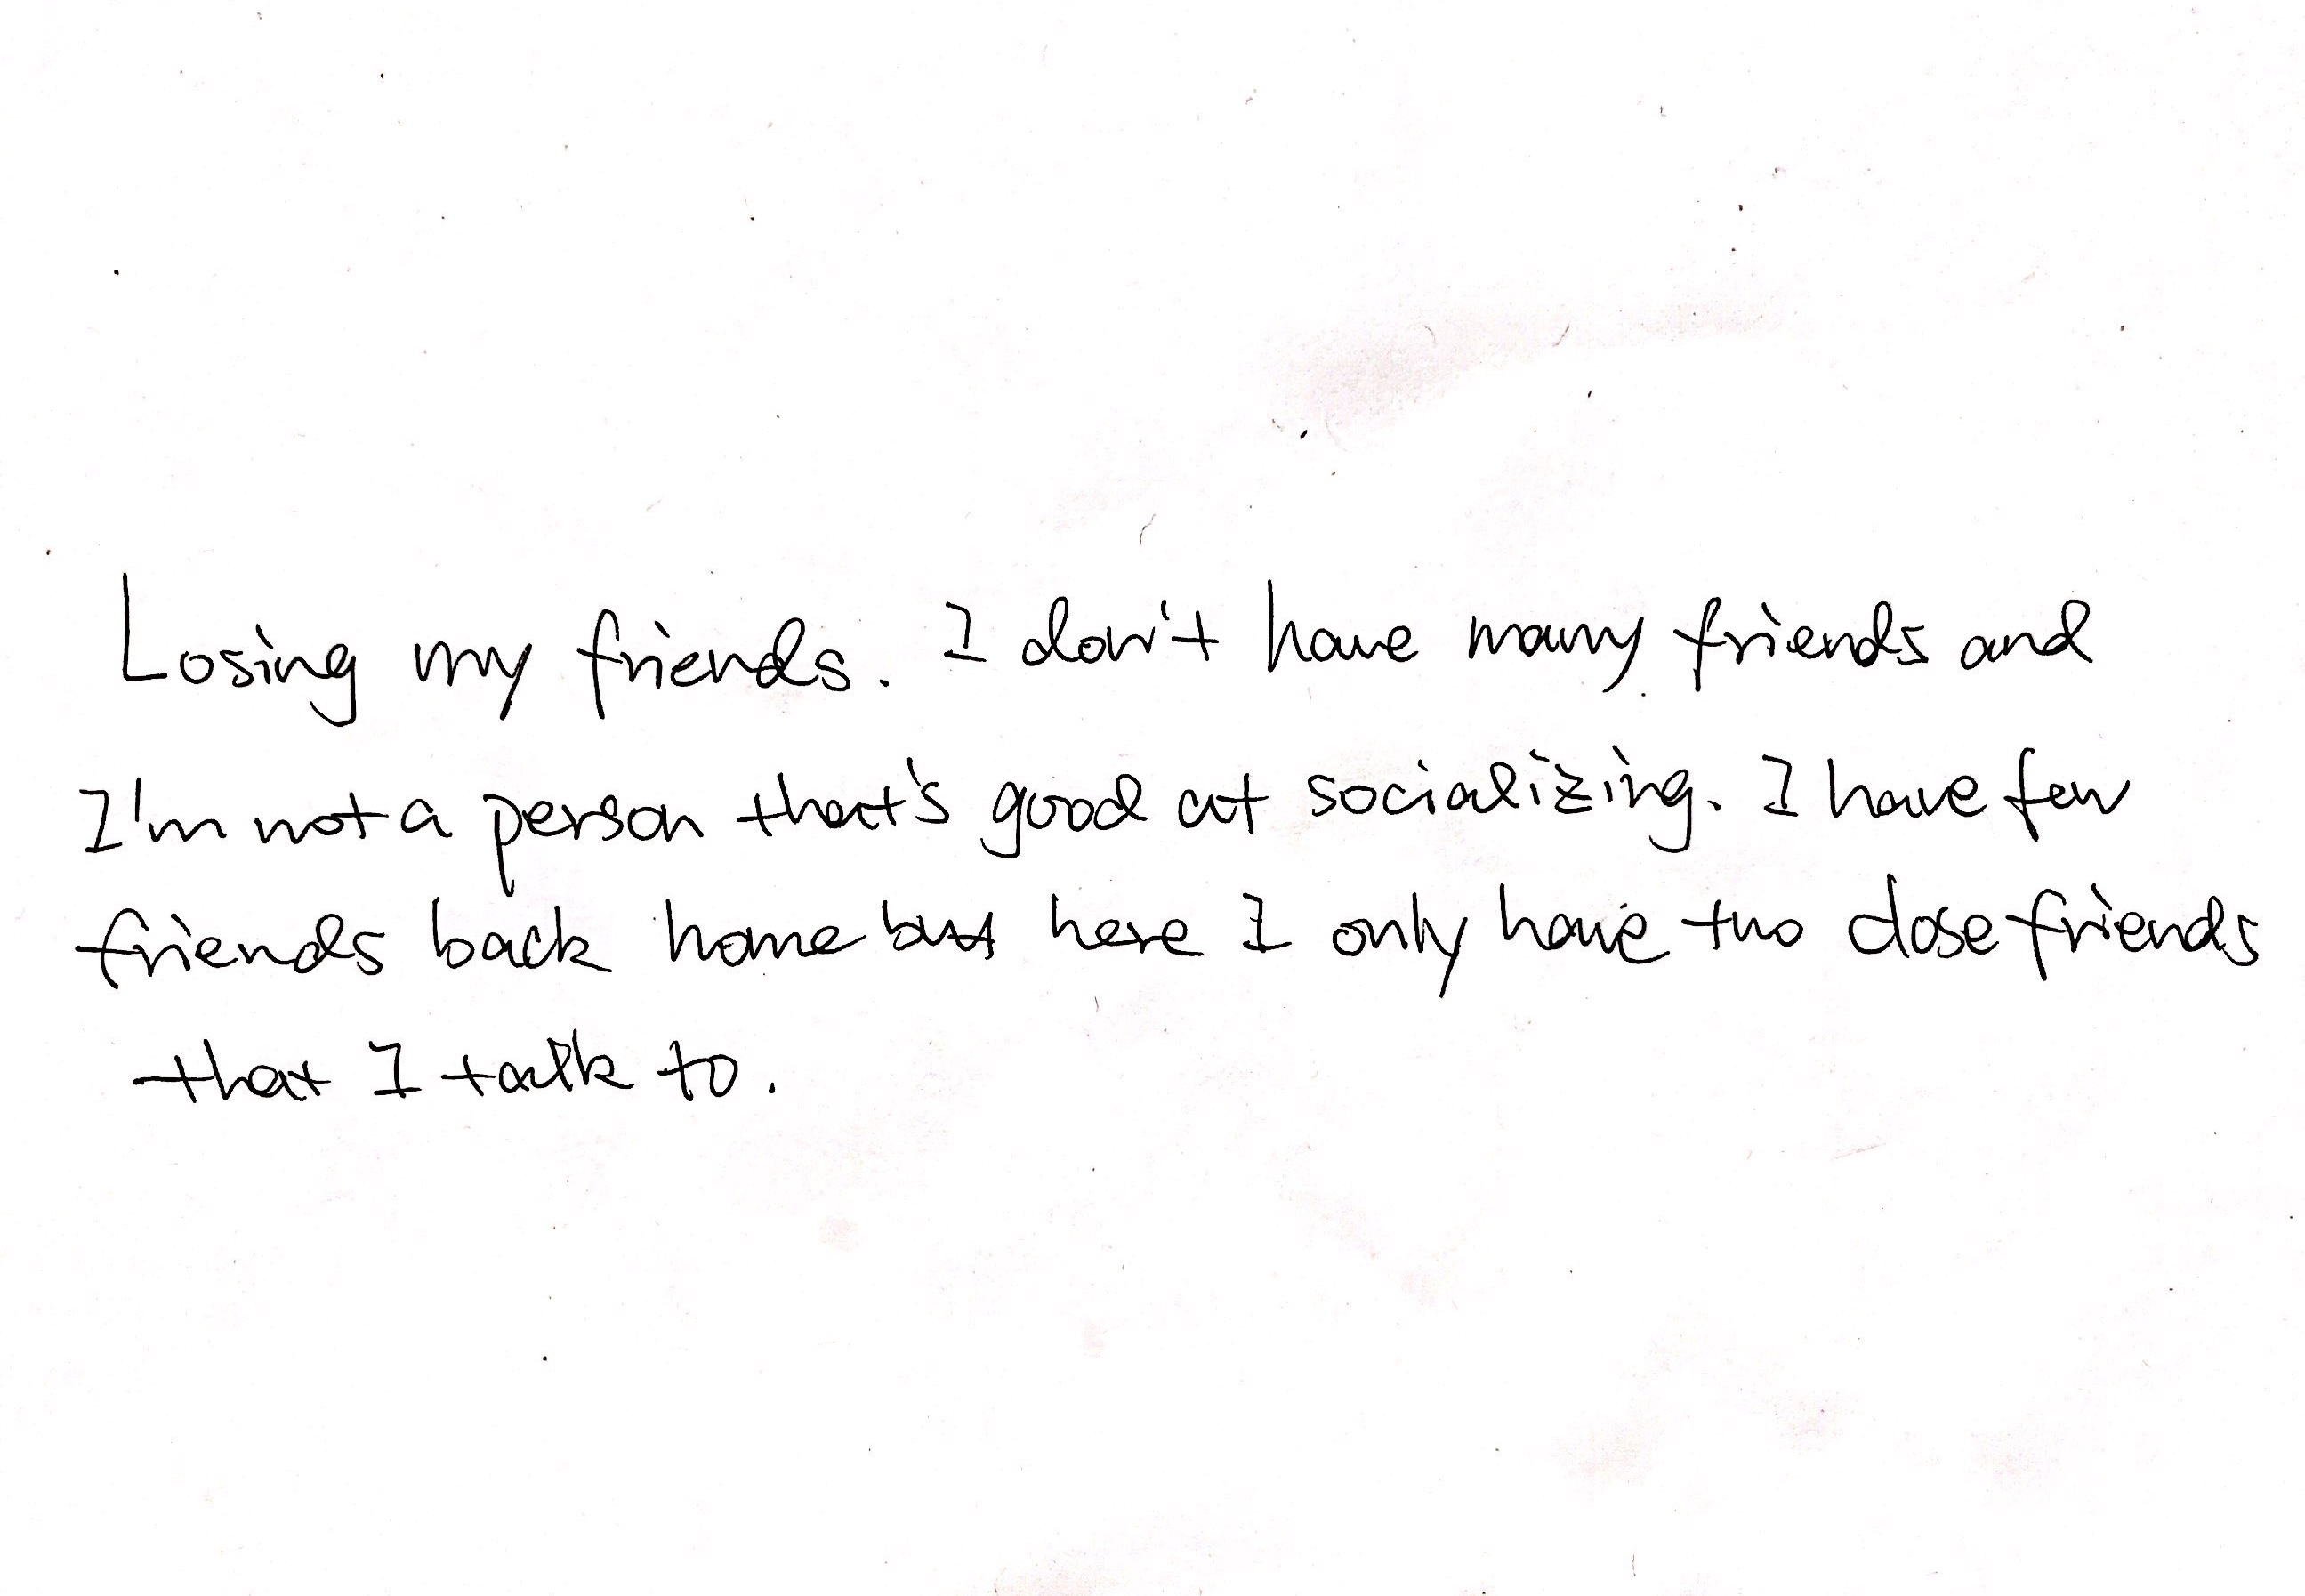 Losing my friends. I don't have many friends and
I'm not a person that's good at socializing. I have few
friends back home but here I only have two close friends
that I talk to.